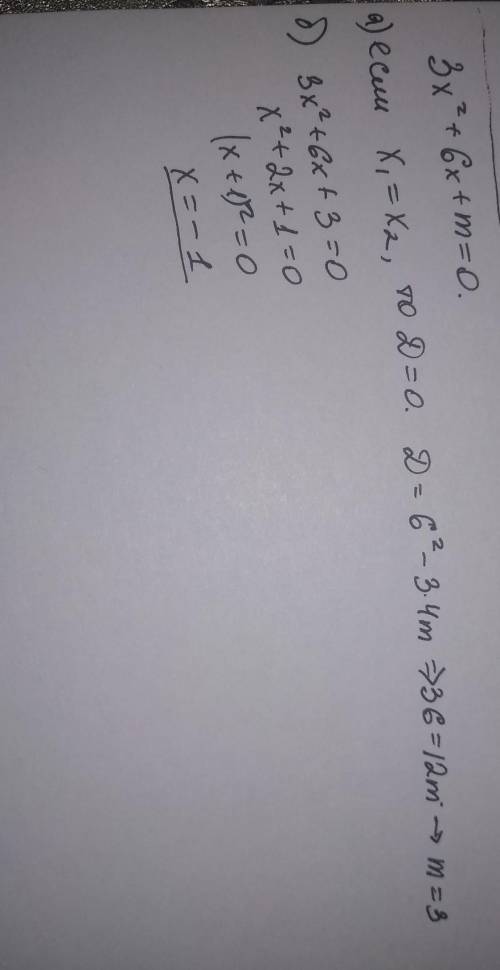 3x² + 6x + m = 0.
а) если x₁ = x₂, то D = 0. D = 6² - 3·4m ⇒ 36 = 12m → m = 3
б) 3x² + 6x + 3 = 0
x² + 2x + 1 = 0
(x + 1)² = 0
x = - 1